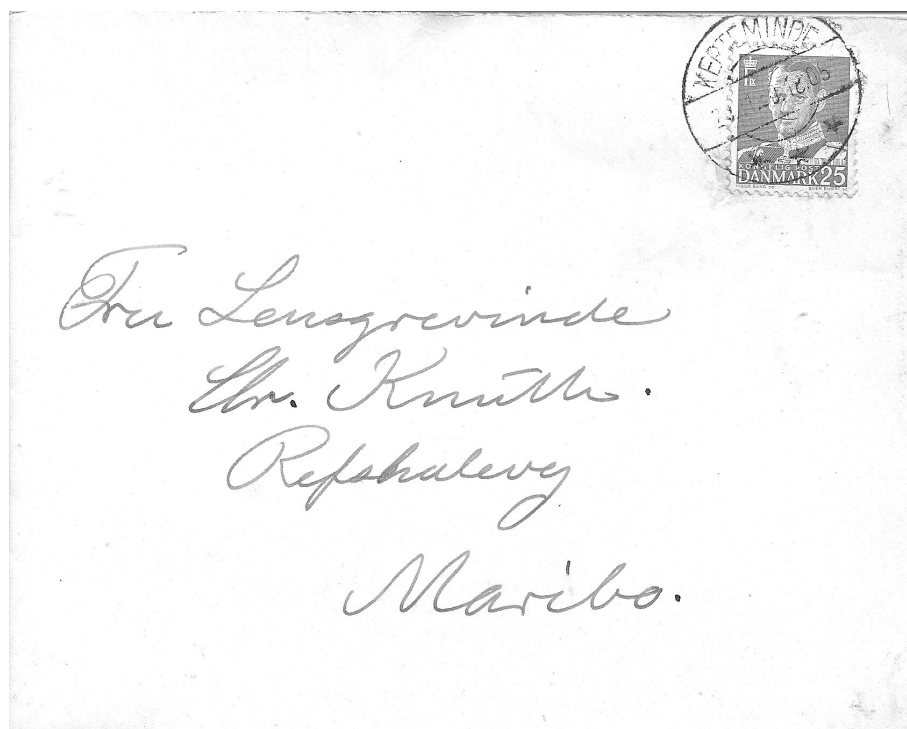 KERTEMINDE
FR
KONGELIG POST
DANMARK 25
Fru Lensgrevinde
Chr. Knuth.
Refshalevej
Maribo.